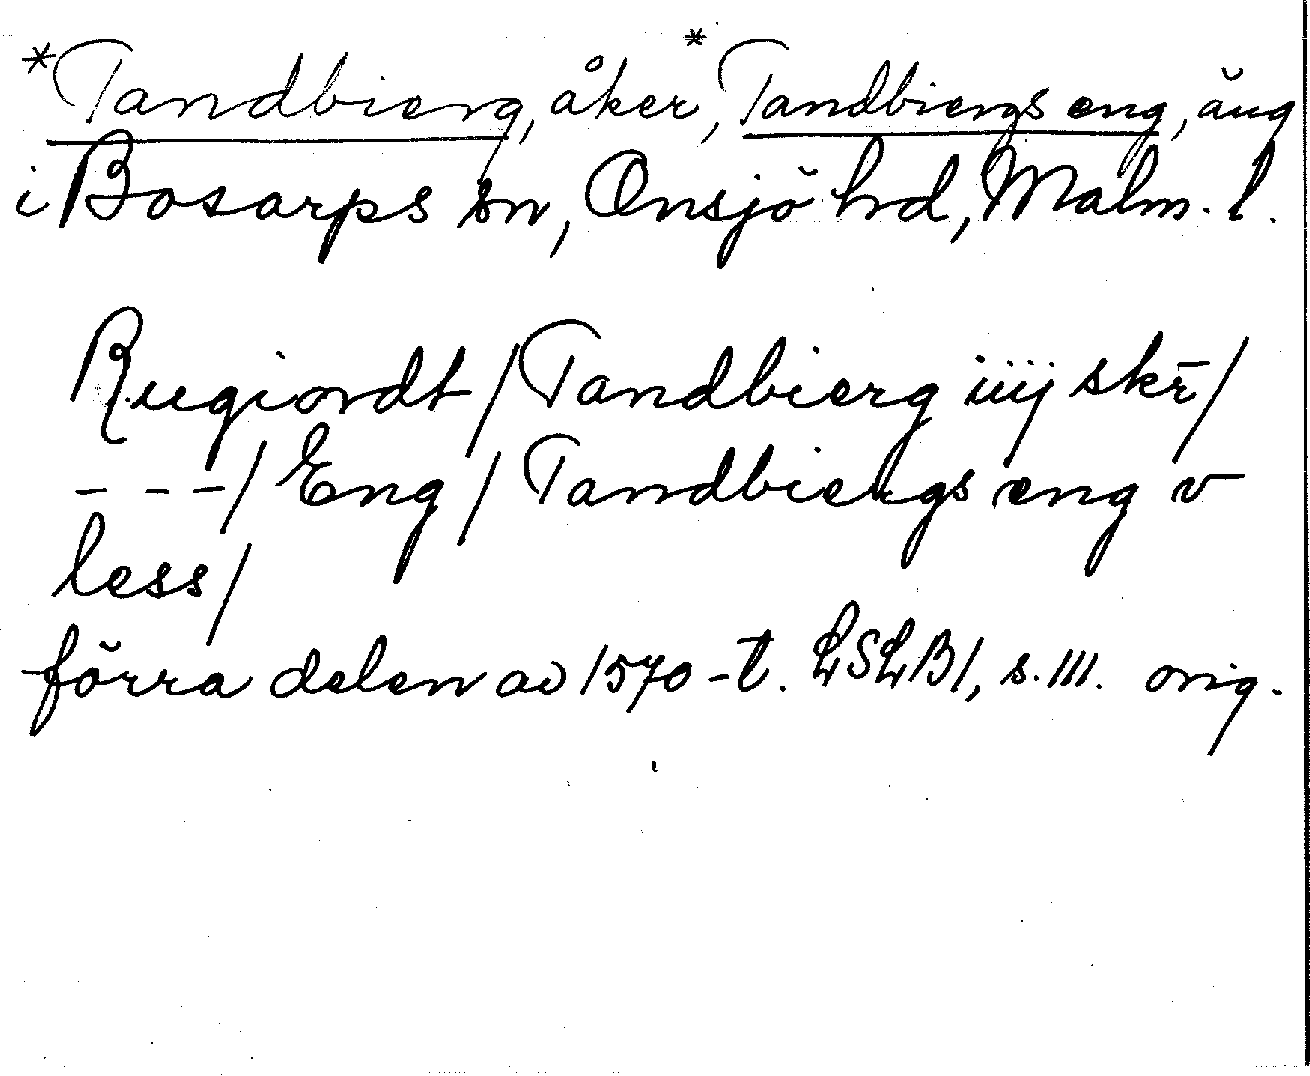 *Tandbierg, åker, *Tandbiergs eng, äng
i Bosarps sn, Onsjö hd, Malm. l.
Rugiordt / Tandbierg iiij skr /
--- / Eng / Tandbiergs eng v
less /
förra delen av 1570-t. LSLB1, s. 111. orig.